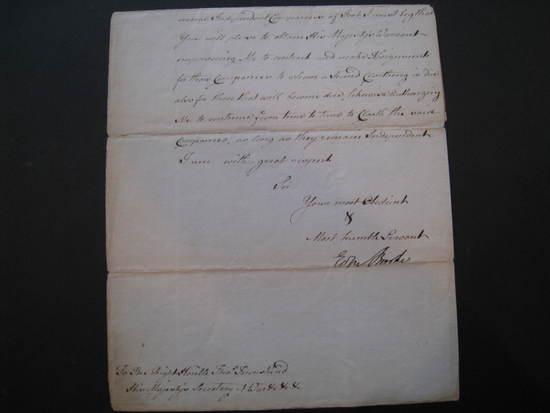 several Independent Companies of Foot, I must beg that
You will please to obtain His Majesty's Warrant
empowering Me to contract and make Assignments
for those Companies to whom a Cloathing is due
also for those that will become due, likewise Authorizing
Me to continue from time to time to Cloath the said
Companies, as long as they remain Independent
I am with great respect
Sir
Your most Obedient
&
Most humble Servant
Edm Burke
To The Right Honble Townshend
His Majesty's Secretary at War &c &c &c